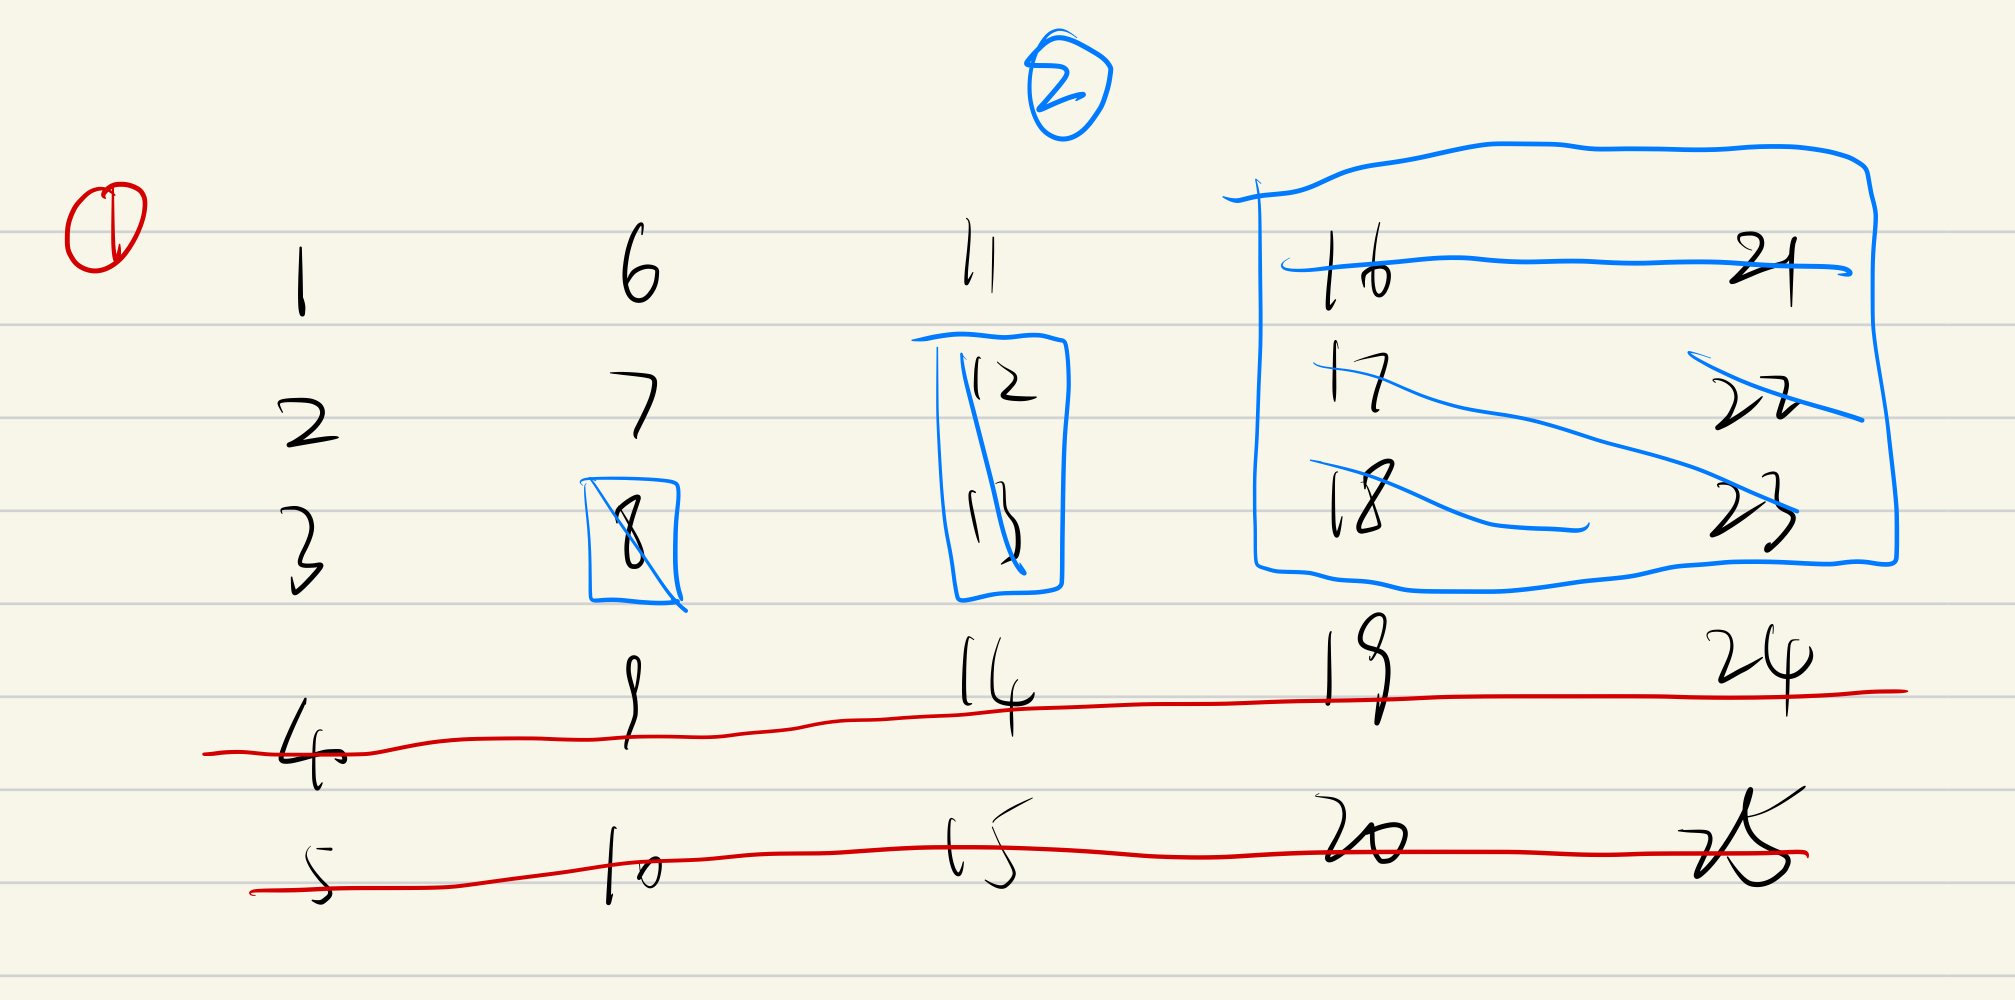 ②
①
1 6 11 16 21
2 7 12 17 22
3 8 13 18 23
4 9 14 19 24
5 10 15 20 25